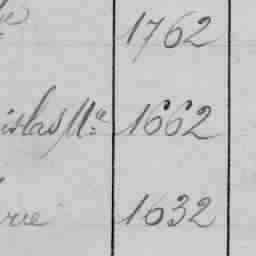 1762
islas Mª 1662
rie 1632